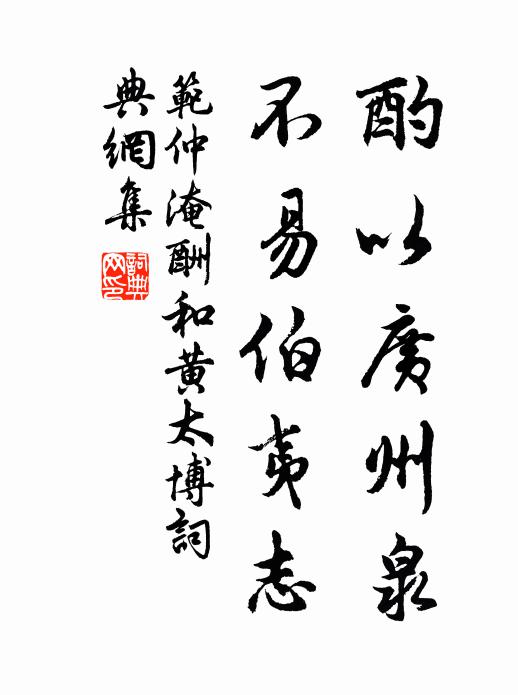 酌以廣州泉
不易伯夷志
範仲淹酬和黄太博詞
典網集
詞典
网印